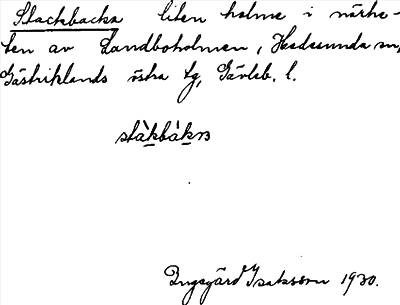 Stackbacka liten holme i närhe-
ten av Sandboholmen, Hedesunda sn,
Gästriklands östra tg, Gävleb. l.
stàkbákɜ
Ingegärd Isaksson 1930.